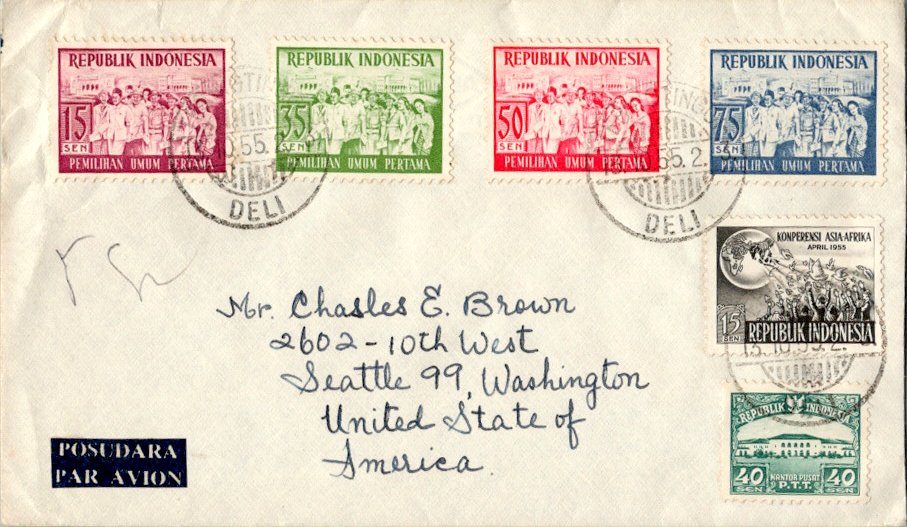 REPUBLIK INDONESIA
15
SEN
PEMILIHAN UMUM PERTAMA
REPUBLIK INDONESIA
35
SEN
PEMILIHAN UMUM PERTAMA
REPUBLIK INDONESIA
50
SEN
PEMILIHAN UMUM PERTAMA
REPUBLIK INDONESIA
75
SEN
PEMILIHAN UMUM PERTAMA
DELI
DELI
KONPERENSI ASIA-AFRIKA
APRIL 1955
15
SEN
REPUBLIK INDONESIA
REPUBLIK INDONESIA
40 KANTOR PUSAT 40
SEN P.T.T. SEN
Mr. Chasles E. Brown
2602-10th West
Seattle 99, Washington
United State of
America.
POSUDARA
PAR AVION